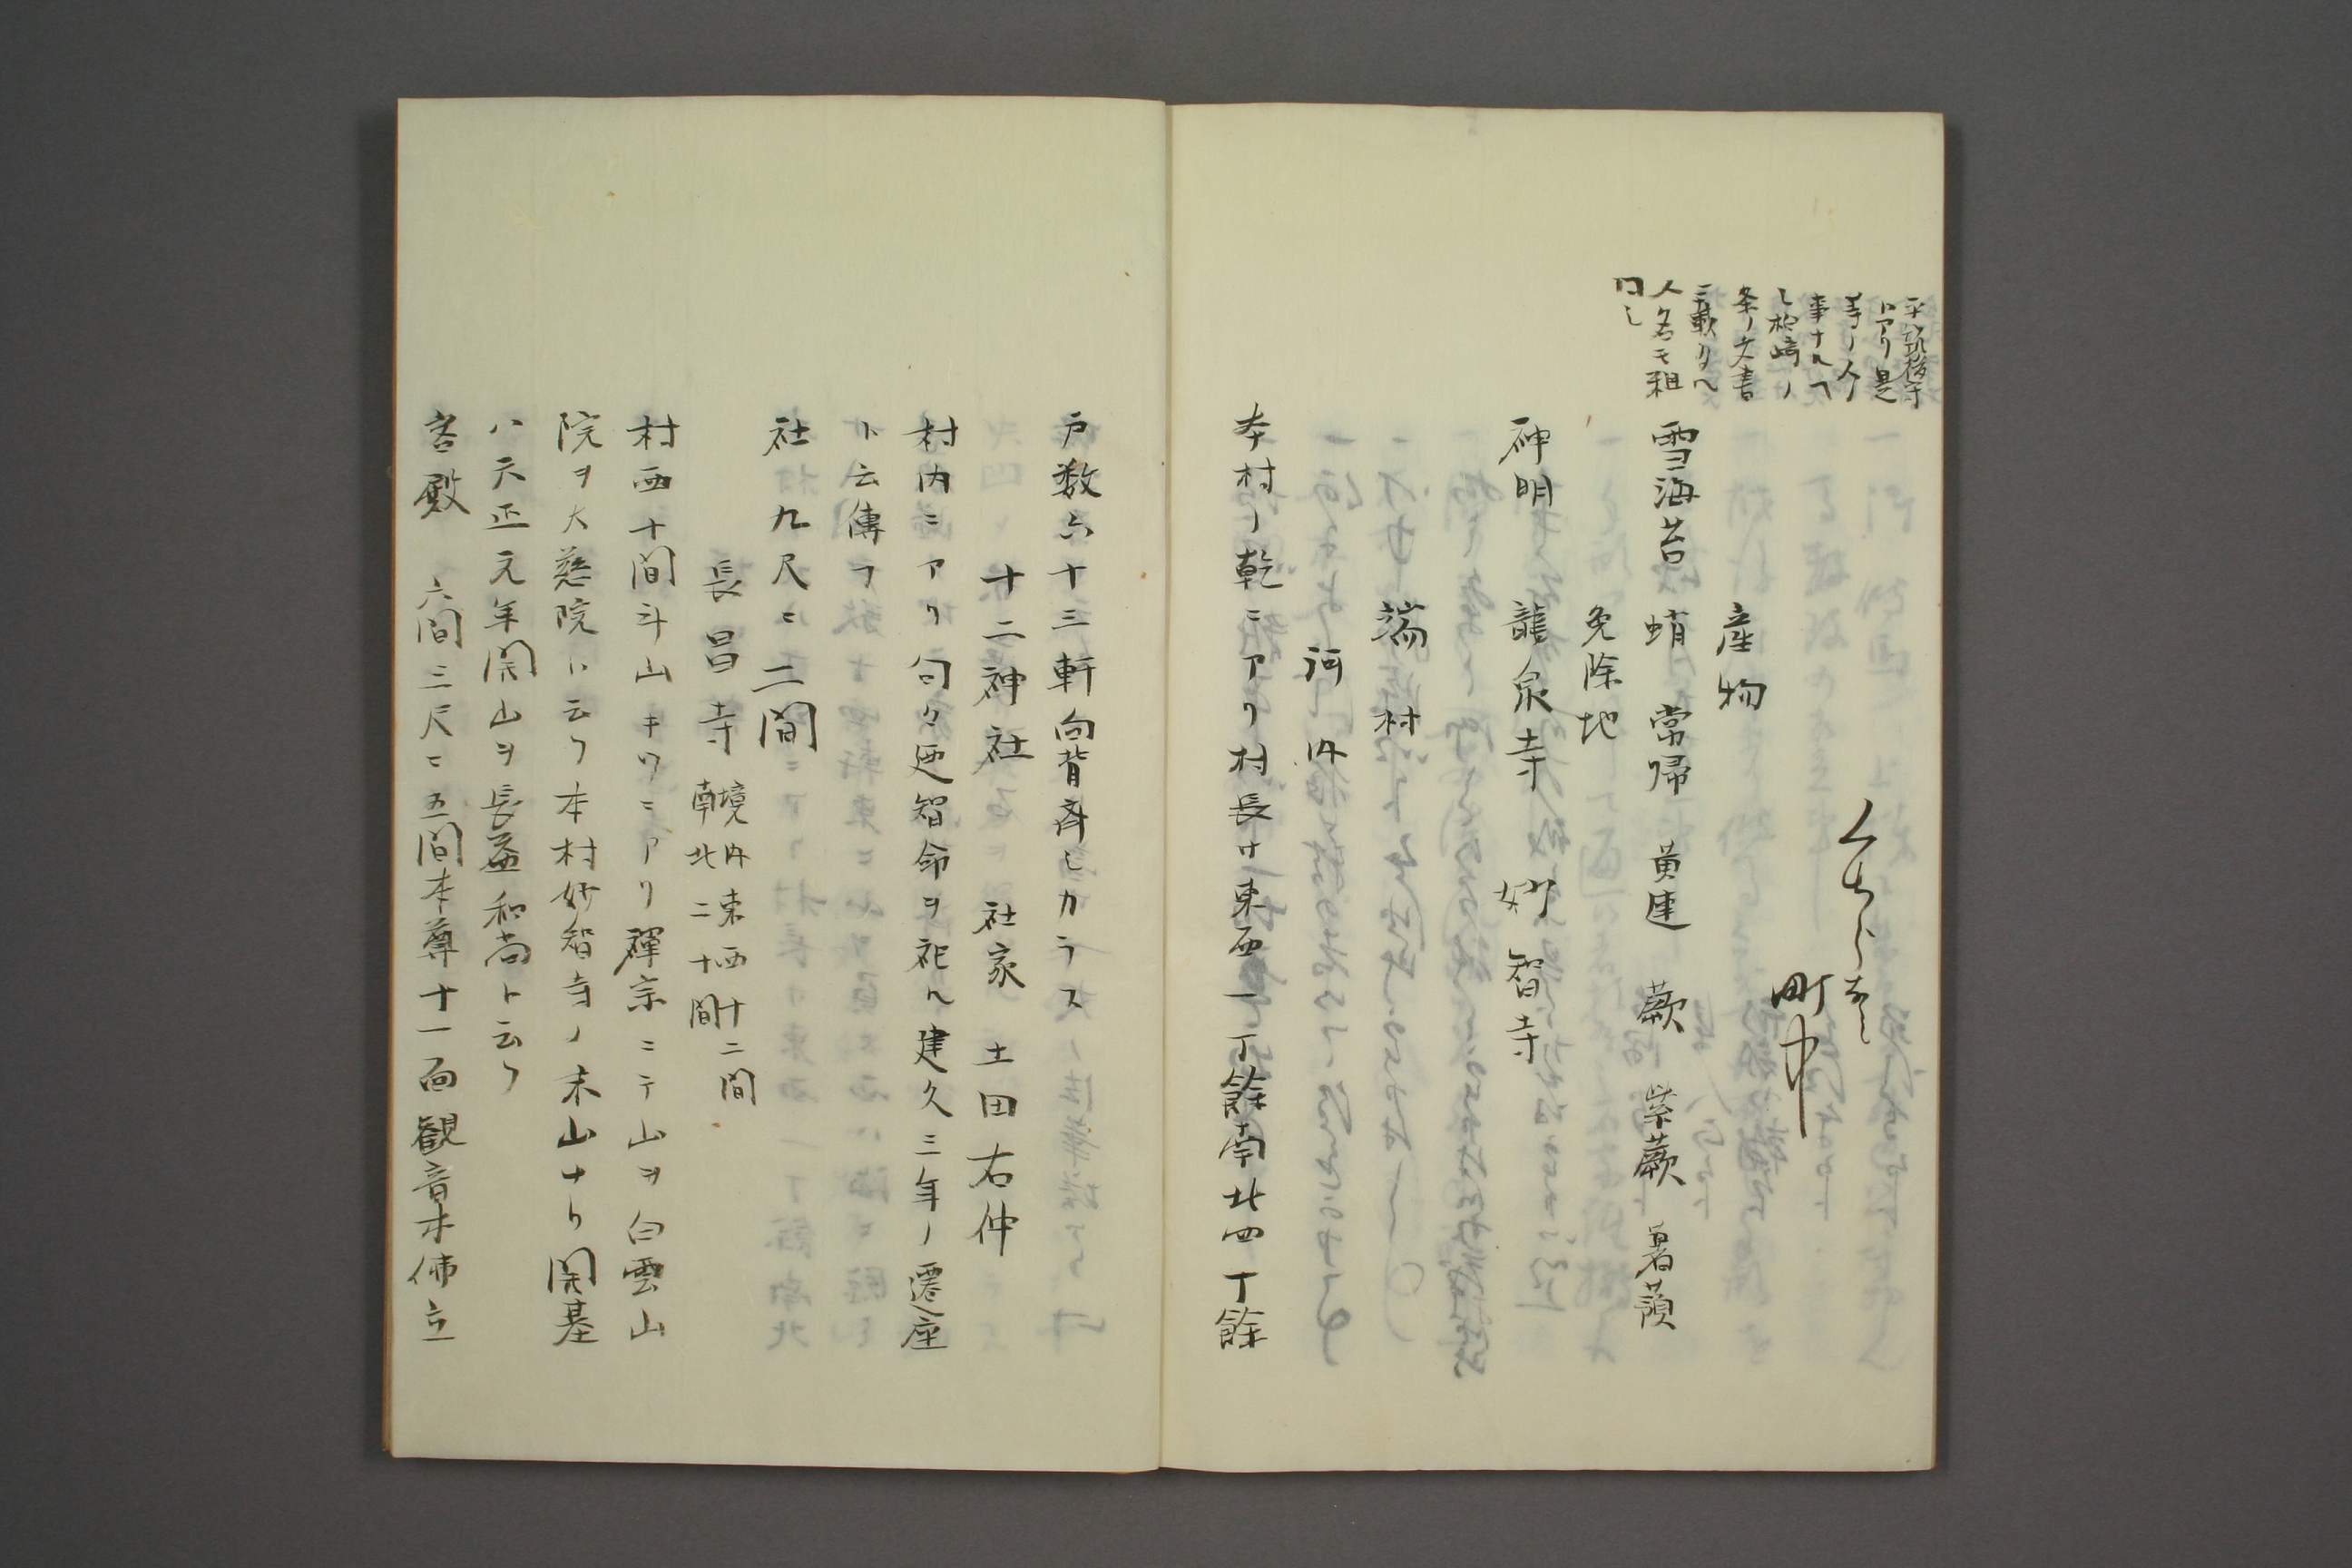 平部後守
トアリ是
等ノ人々
事ナルヘ
シ柏崎ノ
条ノ文書
ニ載タル
人名モ粗
同シ
くちらなみ
町中
産物
雪海苔 蛸 常帰 黄連 蕨 紫蕨 暑蕷
免除地
神明 龍泉寺 妙智寺
端村
河内
本村ノ乾ニアリ村長サ東西一丁餘南北四丁餘
戸数六十三軒向背斉シカラス
十二神社 社家 土田右仲
村内ニアリ句々廼智命ヲ祀ル建久三年ノ遷座
ト云傳フ
社九尺ニ二間
長昌寺 境内東西十二間
南北二十間
村西十間斗山キワニアリ禪宗ニテ山ヲ白雲山
院ヲ大慈院ハ云フ本村妙智寺ノ末山ナリ開基
ハ天正元年開山ヲ長益和尚ト云フ
客殿 六間三尺ニ五間本尊十一面観音木佛立